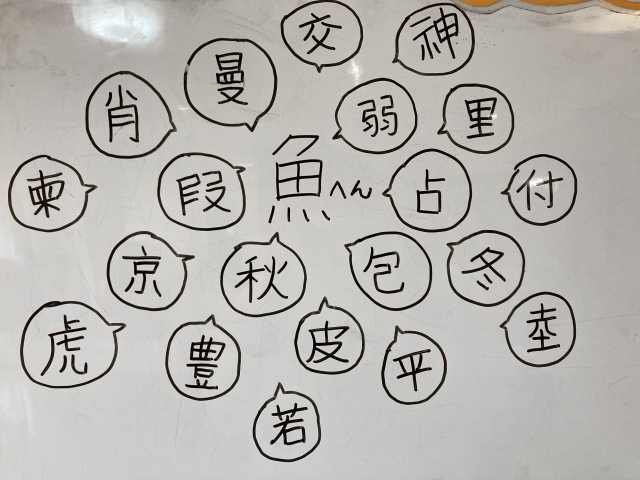 交
神
曼
肖
弱
里
柬
段
魚へん
占
付
京
秋
包
冬
虎
豊
皮
平
若